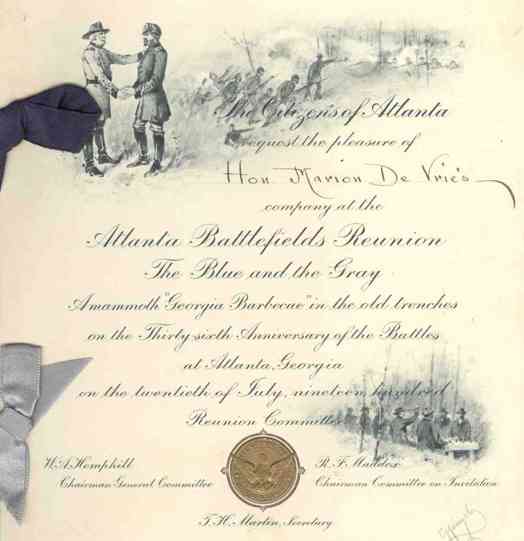 The Citizens of Atlanta
request the pleasure of
Hon. Marion De Vries
company at the
Atlanta Battlefields Reunion
The Blue and the Gray
A mammoth "Georgia Barbecue" in the old trenches
on the Thirty-sixth Anniversary of the Battles
at Atlanta, Georgia
on the twentieth of July, nineteen hundred
Reunion Committee
W.A. Hemphill
Chairman General Committee
R.F. Maddox
Chairman Committee on Invitation
T.H. Martin, Secretary